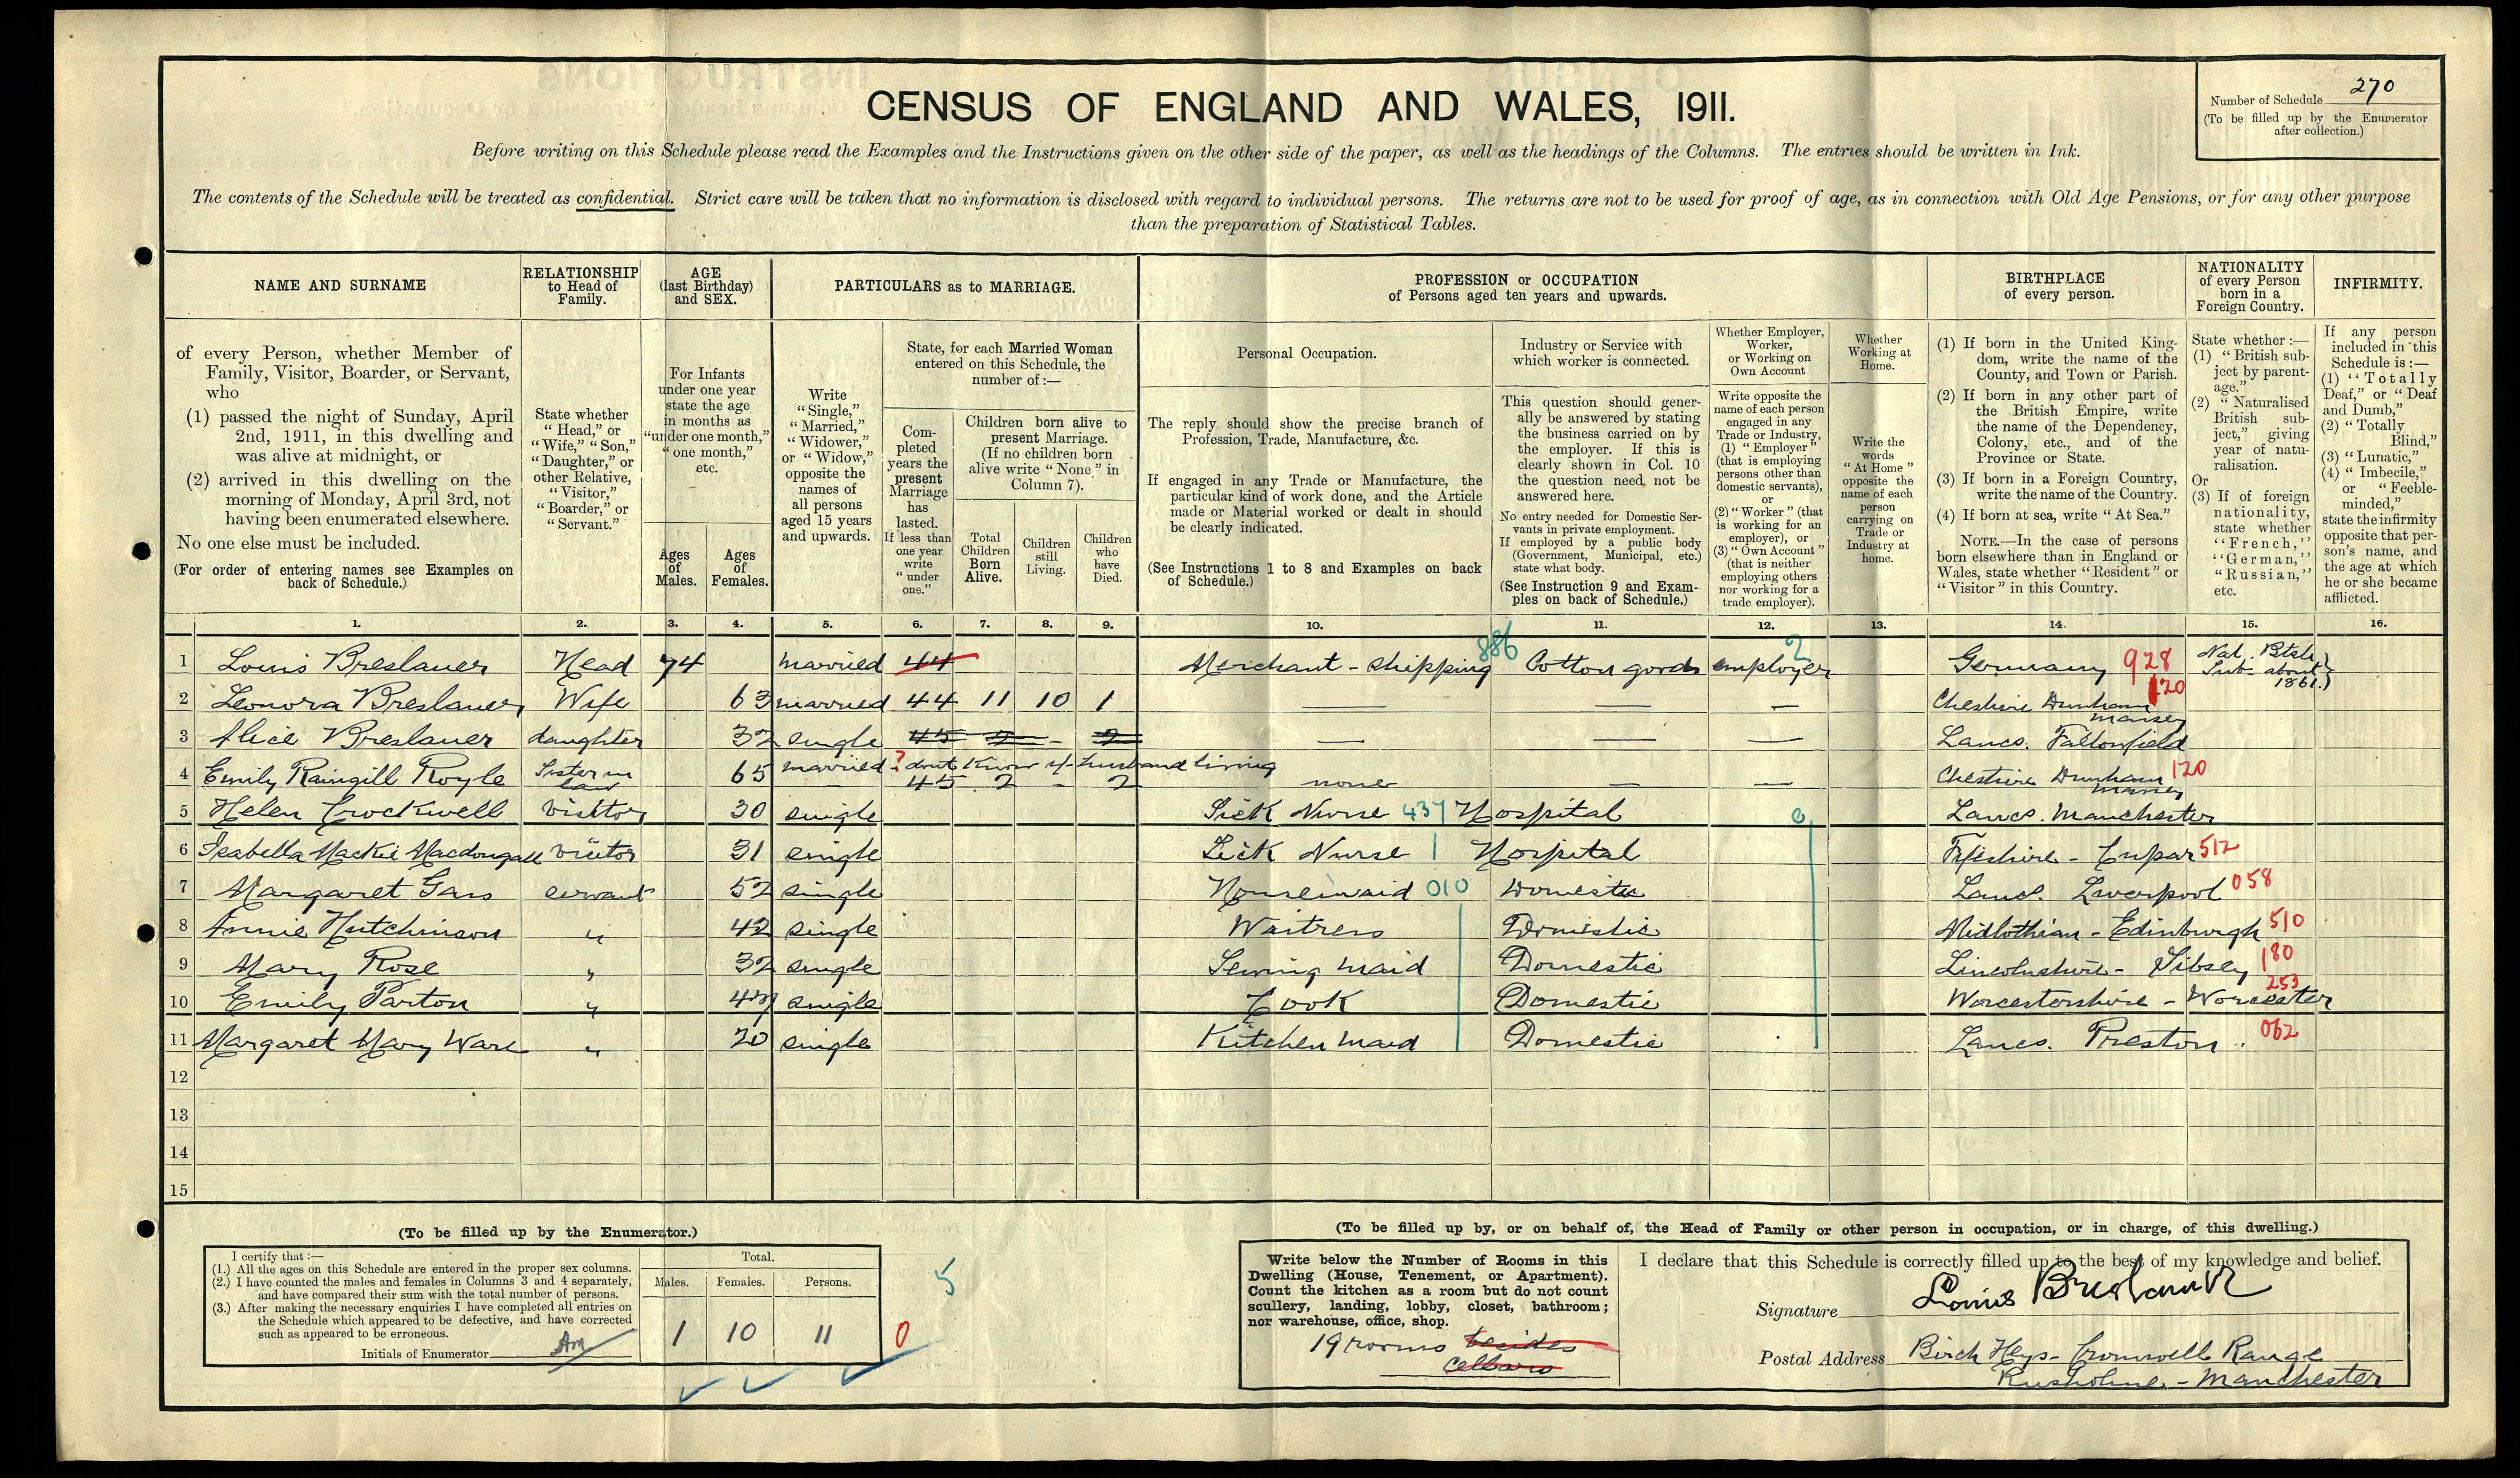 CENSUS OF ENGLAND AND WALES, 1911.
Number of Schedule 270
(To be filled up by the Enumerator
after collection.)
Before writing on this Schedule please read the Examples and the Instructions given on the other side of the paper, as well as the headings of the Columns. The entries should be written in Ink.
The contents of the Schedule will be treated as confidential. Strict care will be taken that no information is disclosed with regard to individual persons. The returns are not to be used for proof of age, as in connection with Old Age Pensions, or for any other purpose
than the preparation of Statistical Tables.
NAME AND SURNAME
of every Person, whether Member of
Family, Visitor, Boarder, or Servant,
who
(1) passed the night of Sunday, April
2nd, 1911, in this dwelling and
was alive at midnight, or
(2) arrived in this dwelling on the
morning of Monday, April 3rd, not
having been enumerated elsewhere.
No one else must be included.
(For order of entering names see Examples on
back of Schedule.)
RELATIONSHIP
to Head of
Family.
State whether
"Head," or
"Wife," "Son,"
"Daughter," or
other Relative,
"Visitor,"
"Boarder," or
"Servant."
AGE
(last Birthday)
and SEX.
For Infants
under one year
state the age
in months as
"under one month,"
"one month,"
etc.
Ages
of
Males.
Ages
of
Females.
PARTICULARS as to MARRIAGE.
Write
"Single,"
"Married,"
"Widower,"
or "Widow,"
opposite the
names of
all persons
aged 15 years
and upwards.
State, for each Married Woman
entered on this Schedule, the
number of:—
Com-
pleted
years the
present
Marriage
has
lasted.
If less than
one year
write
"under
one."
Children born alive to
present Marriage.
(If no children born
alive write "None" in
Column 7).
Total
Children
Born
Alive.
Children
still
Living.
Children
who
have
Died.
PROFESSION or OCCUPATION
of Persons aged ten years and upwards.
Personal Occupation.
The reply should show the precise branch of
Profession, Trade, Manufacture, &c.
If engaged in any Trade or Manufacture, the
particular kind of work done, and the Article
made or Material worked or dealt in should
be clearly indicated.
(See Instructions 1 to 8 and Examples on back
of Schedule.)
Industry or Service with
which worker is connected.
This question should gener-
ally be answered by stating
the business carried on by
the employer. If this is
clearly shown in Col. 10
the question need not be
answered here.
No entry needed for Domestic Ser-
vants in private employment.
If employed by a public body
(Government, Municipal, etc.)
state what body.
(See Instruction 9 and Exam-
ples on back of Schedule.)
Whether Employer,
Worker,
or Working on
Own Account
Write opposite the
name of each person
engaged in any
Trade or Industry,
(1) "Employer"
(that is employing
persons other than
domestic servants),
or
(2) "Worker" (that
is working for an
employer), or
(3) "Own Account"
(that is neither
employing others
nor working for a
trade employer).
Whether
Working at
Home.
Write the
words
"At Home"
opposite the
name of each
person
carrying on
Trade or
Industry at
home.
BIRTHPLACE
of every person.
(1) If born in the United King-
dom, write the name of the
County, and Town or Parish.
(2) If born in any other part of
the British Empire, write
the name of the Dependency,
Colony, etc., and of the
Province or State.
(3) If born in a Foreign Country,
write the name of the Country.
(4) If born at sea, write "At Sea."
NOTE.—In the case of persons
born elsewhere than in England or
Wales, state whether "Resident" or
"Visitor" in this Country.
NATIONALITY
of every Person
born in a
Foreign Country.
State whether:—
(1) "British sub-
ject by parent-
age."
(2) "Naturalised
British sub-
ject," giving
year of natu-
ralisation.
Or
(3) If of foreign
nationality,
state whether
"French,"
"German,"
"Russian,"
etc.
INFIRMITY.
If any person
included in this
Schedule is:—
(1) "Totally
Deaf," or "Deaf
and Dumb,"
(2) "Totally
Blind,"
(3) "Lunatic,"
(4) "Imbecile,"
or "Feeble-
minded,"
state the infirmity
opposite that per-
son's name, and
the age at which
he or she became
afflicted.
1. 2. 3. 4. 5. 6. 7. 8. 9. 10. 11. 12. 13. 14. 15. 16.
1 Louis Breslauer Head 74 married 44 Merchant - shipping 886 Cotton goods employer 2 Germany 928 Nat. Btsh Sub- about 1861.)
2 Leonora Breslauer Wife 63 married 44 11 10 1 — — — Cheshire Dunham Massey 120
3 Alice Breslauer daughter 32 single 45 2 - 2 — — — Lancs. Fallowfield
4 Emily Raingill Royle Sister in law 65 married ? dont know if husband living 45 2 - 2 none — — Cheshire Dunham Massey 120
5 Helen Crockwell visitor 30 single Sick Nurse 437 Hospital Lancs. Manchester
6 Isabella Mackie Macdougall visitor 31 single Sick Nurse Hospital Fifeshire - Cupar 512
7 Margaret Gass servant 52 single Housemaid 010 Domestic Lancs. Liverpool 058
8 Annie Hutchinson " 42 single Waitress Domestic Midlothian - Edinburgh 510
9 Mary Rose " 32 single Sewing maid Domestic Lincolnshire - Sibsey 180
10 Emily Parton " single Cook Domestic Worcestershire - Worcester 253
11 Margaret Mary Ware " 20 single Kitchen maid Domestic Lancs. Preston. 062
12
13
14
15
(To be filled up by the Enumerator.)
I certify that:—
(1.) All the ages on this Schedule are entered in the proper sex columns.
(2.) I have counted the males and females in Columns 3 and 4 separately,
and have compared their sum with the total number of persons.
(3.) After making the necessary enquiries I have completed all entries on
the Schedule which appeared to be defective, and have corrected
such as appeared to be erroneous.
Initials of Enumerator
Total.
Males. Females. Persons.
1 10 11
0
5
(To be filled up by, or on behalf of, the Head of Family or other person in occupation, or in charge, of this dwelling.)
Write below the Number of Rooms in this
Dwelling (House, Tenement, or Apartment).
Count the kitchen as a room but do not count
scullery, landing, lobby, closet, bathroom;
nor warehouse, office, shop.
19 rooms besides
cellars
I declare that this Schedule is correctly filled up to the best of my knowledge and belief.
Signature Louis Breslauer
Postal Address Birch Heys - Cromwell Range
Rusholme - Manchester